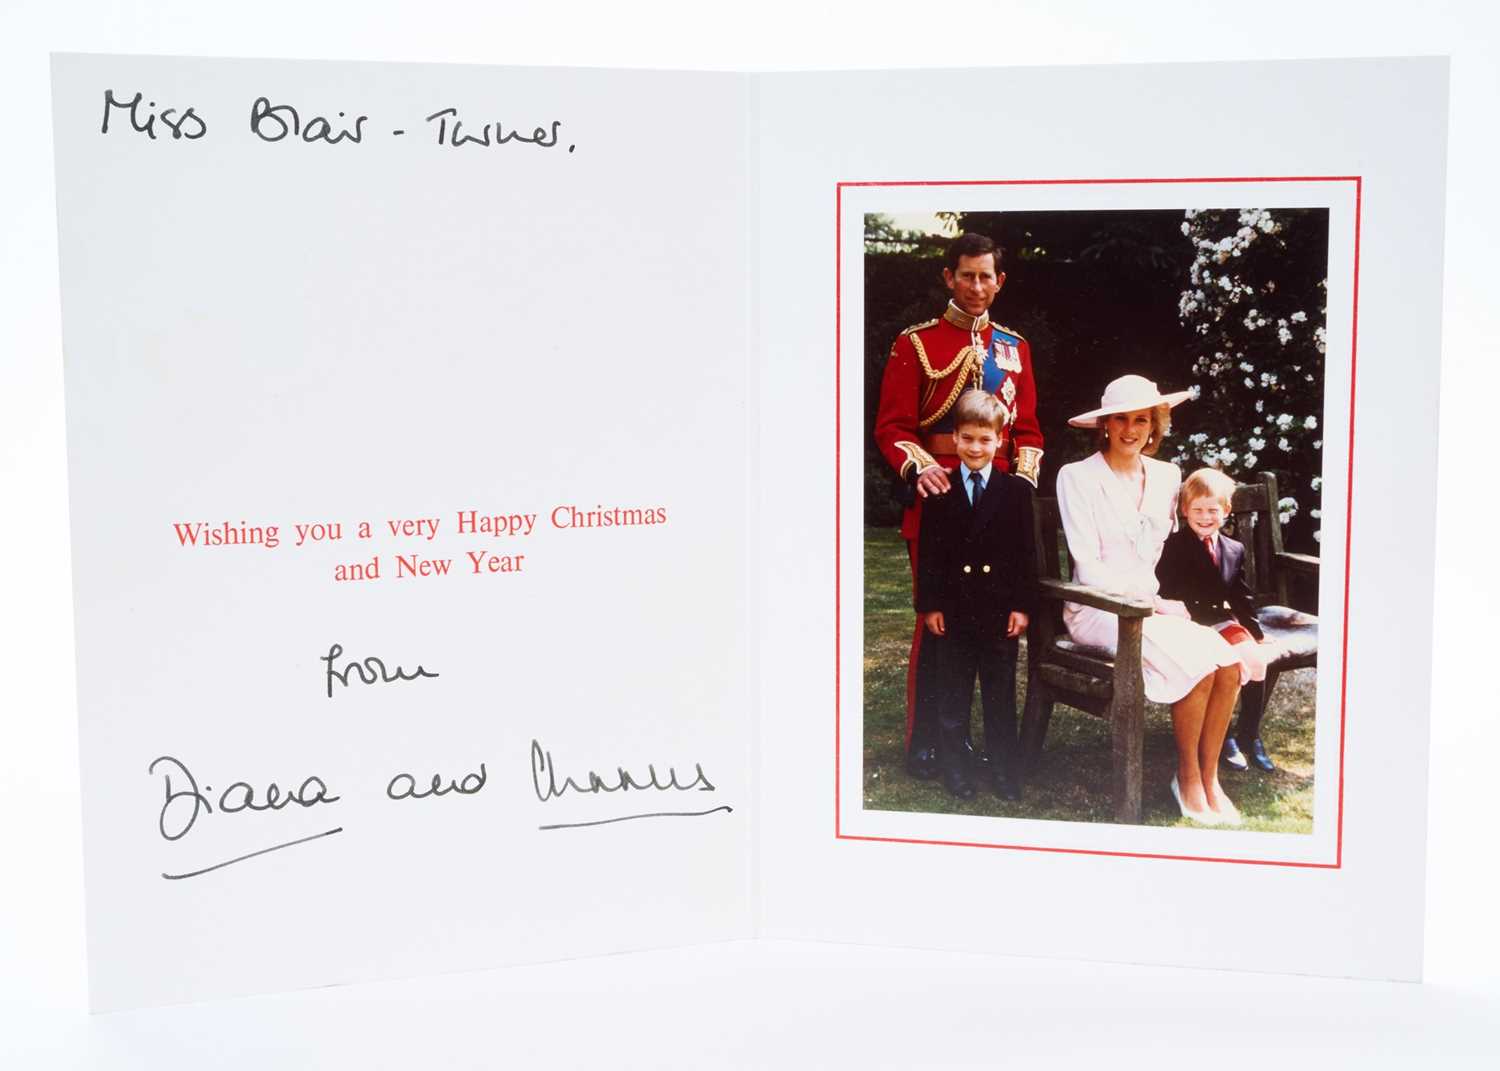 Miss Blair - Turner.
Wishing you a very Happy Christmas
and New Year
from
Diana and Charles